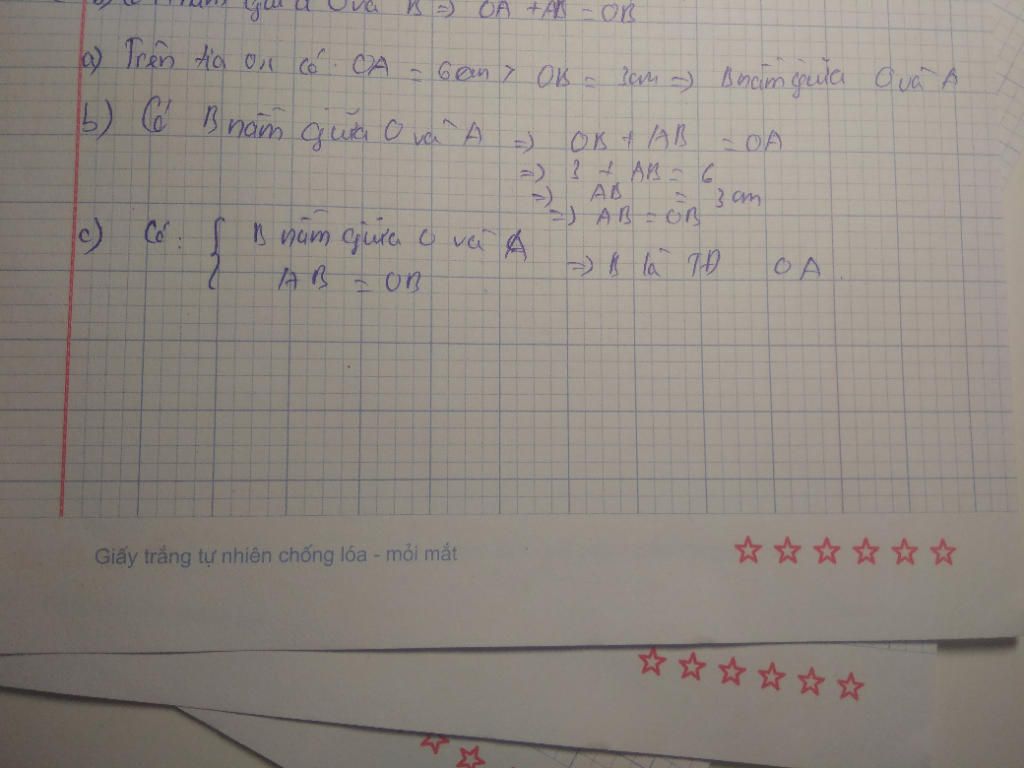 b) Có A nằm giữa O và B => OA + AB = OB
a) Trên tia Ox có: OA = 6cm > OB = 3cm => B nằm giữa O và A
b) Có B nằm giữa O và A => OB + AB = OA
=> 3 + AB = 6
=> AB = 3cm
=> AB = OB
c) Có: { B nằm giữa O và A
AB = OB => B là TĐ OA.
Giấy trắng tự nhiên chống lóa - mỏi mắt